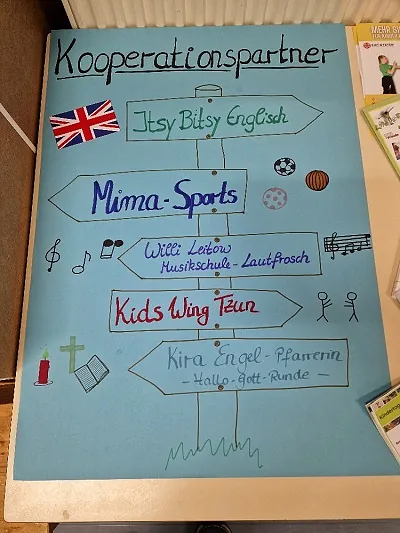 Kooperationspartner
Itsy Bitsy Englisch
Mima-Sports
Willi Leitow
Musikschule-Lautfrosch
Kids Wing Tzun
Kira Engel-Pfarrerin
-Hallo-Gott-Runde-
MEHR